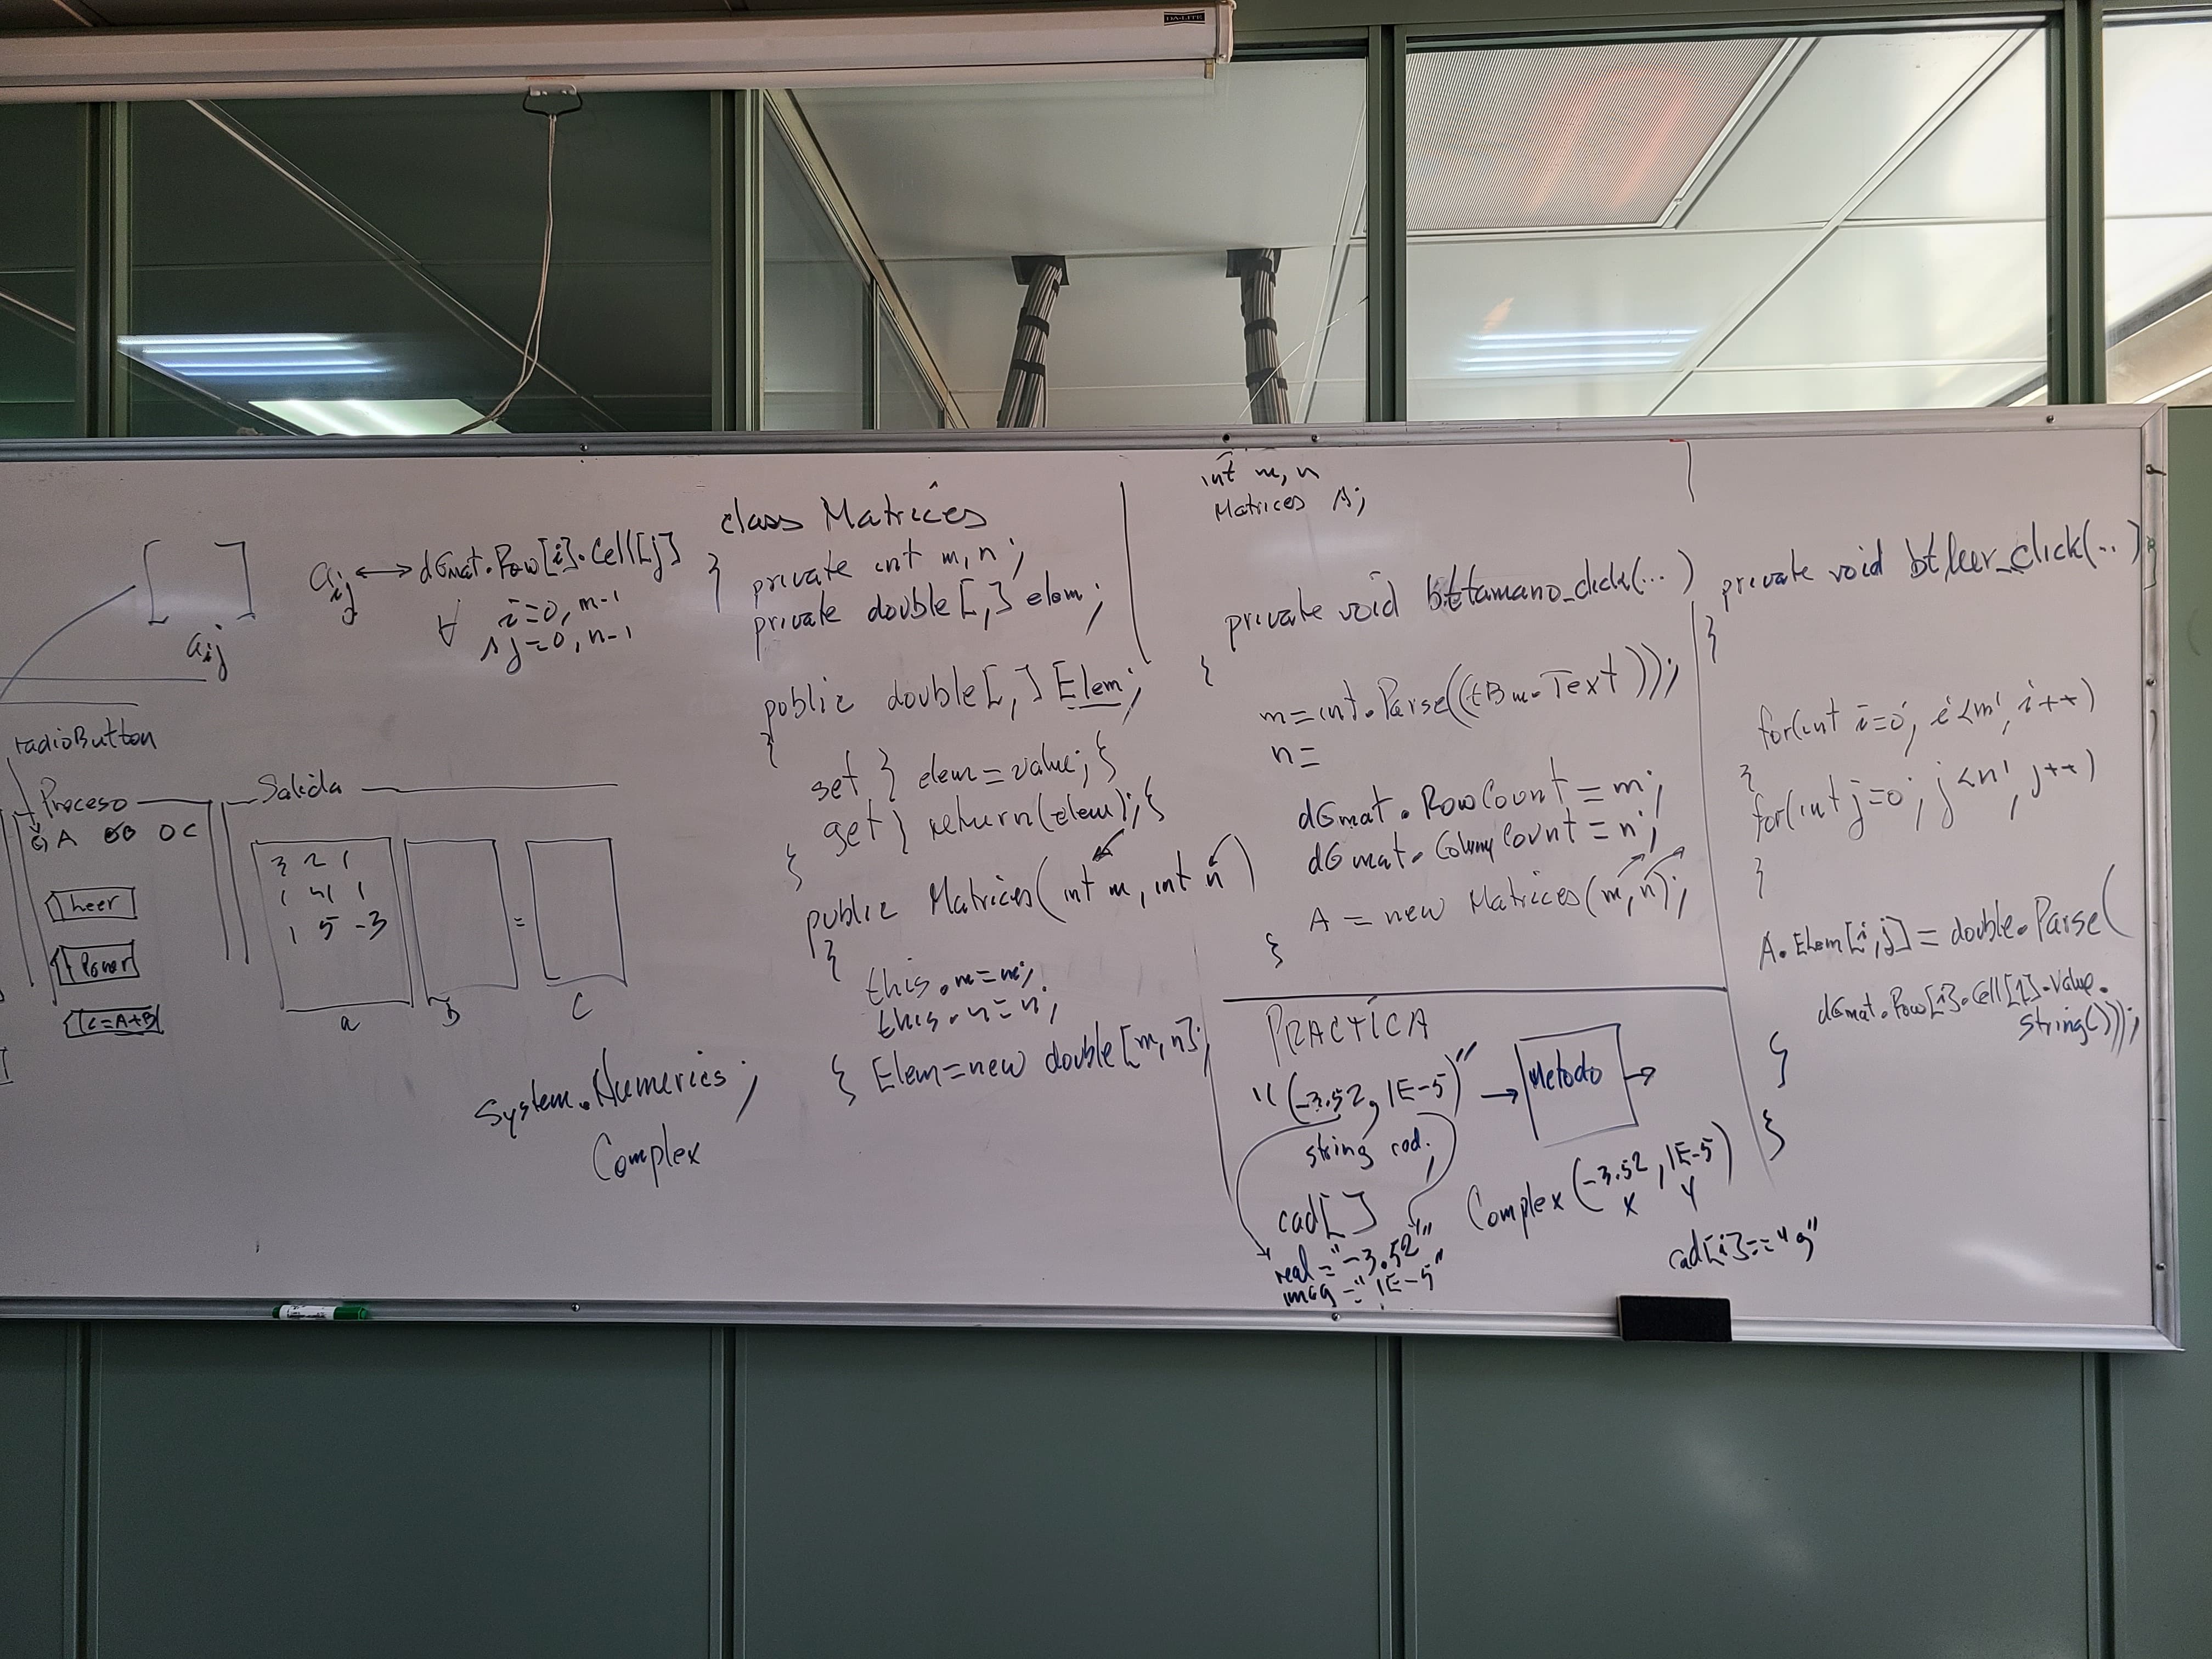 DA-LITE
[ ]
aij
aij ↔ dGmat.Row[i].Cell[j]
∀ i=0, m-1
∧ j=0, n-1
radioButton
Proceso
A B C
Leer
Poner
C=A+B
Salida
3 2 1
1 4 1
1 5 -3
=
a B C
System.Numerics;
Complex
class Matrices
{ private int m, n;
private double[,] elem;
public double[,] Elem;
{
set { elem=value; }
get { return(elem); }
}
public Matrices(int m, int n)
{
this.m=m;
this.n=n;
} Elem=new double[m,n];
int m, n
Matrices A;
private void bttamano_click(...)
{
m=int.Parse((tBm.Text));
n=
dGmat.RowCount = m;
dGmat.ColumnCount = n;
A = new Matrices(m,n);
}
PRACTICA
"(-3.52, 1E-5)" → Metodo →
string cad;
cad[]
real="-3.52"
imag="1E-5"
Complex(-3.52, 1E-5)
x y
cad[i]=="9"
private void btleer_click(...)
{
for(int i=0; i<m; i++)
{
for(int j=0; j<n; j++)
{
A.Elem[i,j] = double.Parse(
dGmat.Row[i].Cell[j].Value.
string()));
}
}